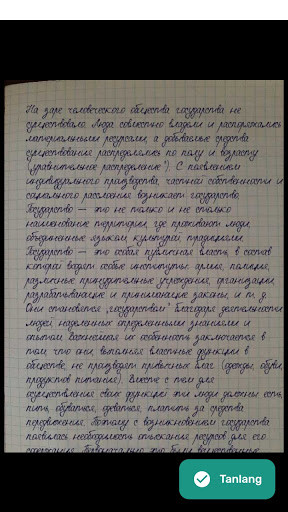 На заре человеческого общества государства не
существовало. Люди совместно владели и распоряжались
материальными ресурсами, а добываемые средства
существования распределялись по полу и возрасту
("уравнительное распределение"). С появлением
индивидуального производства, частной собственности и
социального расслоения возникает государство.
Государство — это не только и не столько
наименование территории, где проживают люди,
объединенные языком, культурой, традициями.
Государство — это особая публичная власть, в состав
которой входят особые институты: армия, полиция,
различные принудительные учреждения, организации,
разрабатывающие и принимающие законы, и т. д.
Они становятся "государством" благодаря деятельности
людей, наделенных определенными знаниями и
опытом. Важнейшая их особенность заключается в
том, что они, выполняя властные функции в
обществе, не производят привычных благ (одежды, обуви,
продуктов питания). Вместе с тем для
осуществления своих функций эти люди должны есть,
пить, обуваться, одеваться, платить за средства
передвижения. Поэтому с возникновением государства
появилась необходимость отыскания ресурсов для его
содержания. Первоначально это были вещественные
Tanlang